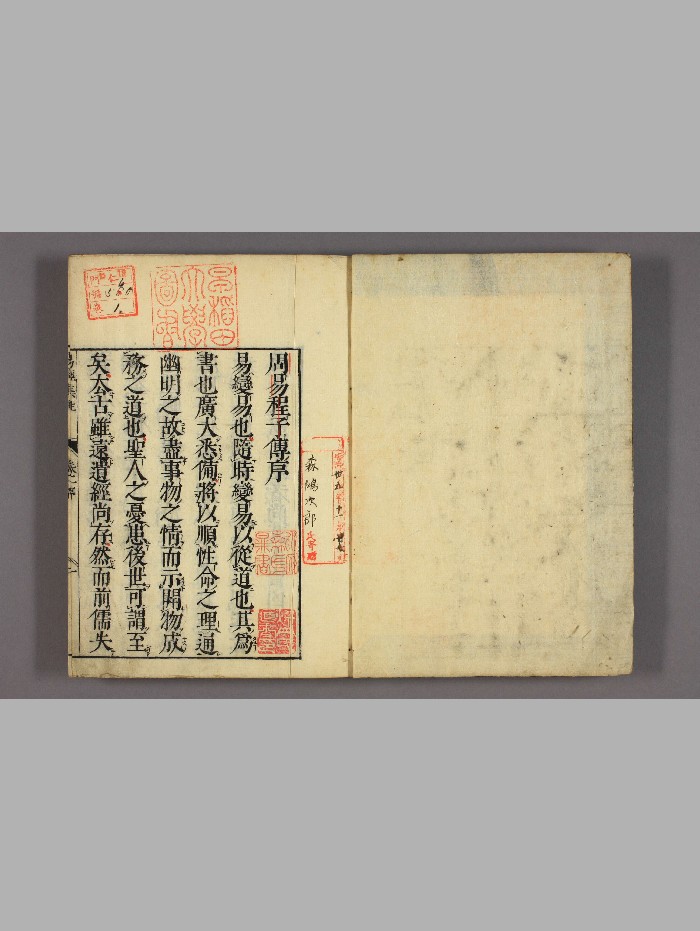 周易程子傳序
易變易也隨時變易以從道也其爲
書也廣大悉備將以順性命之理通
幽明之故盡事物之情而示開物成
務之道也聖人之憂患後世可謂至
矣去古雖遠遺經尚存然而前儒失
早稻田
大學
圖書
森鴻次郎